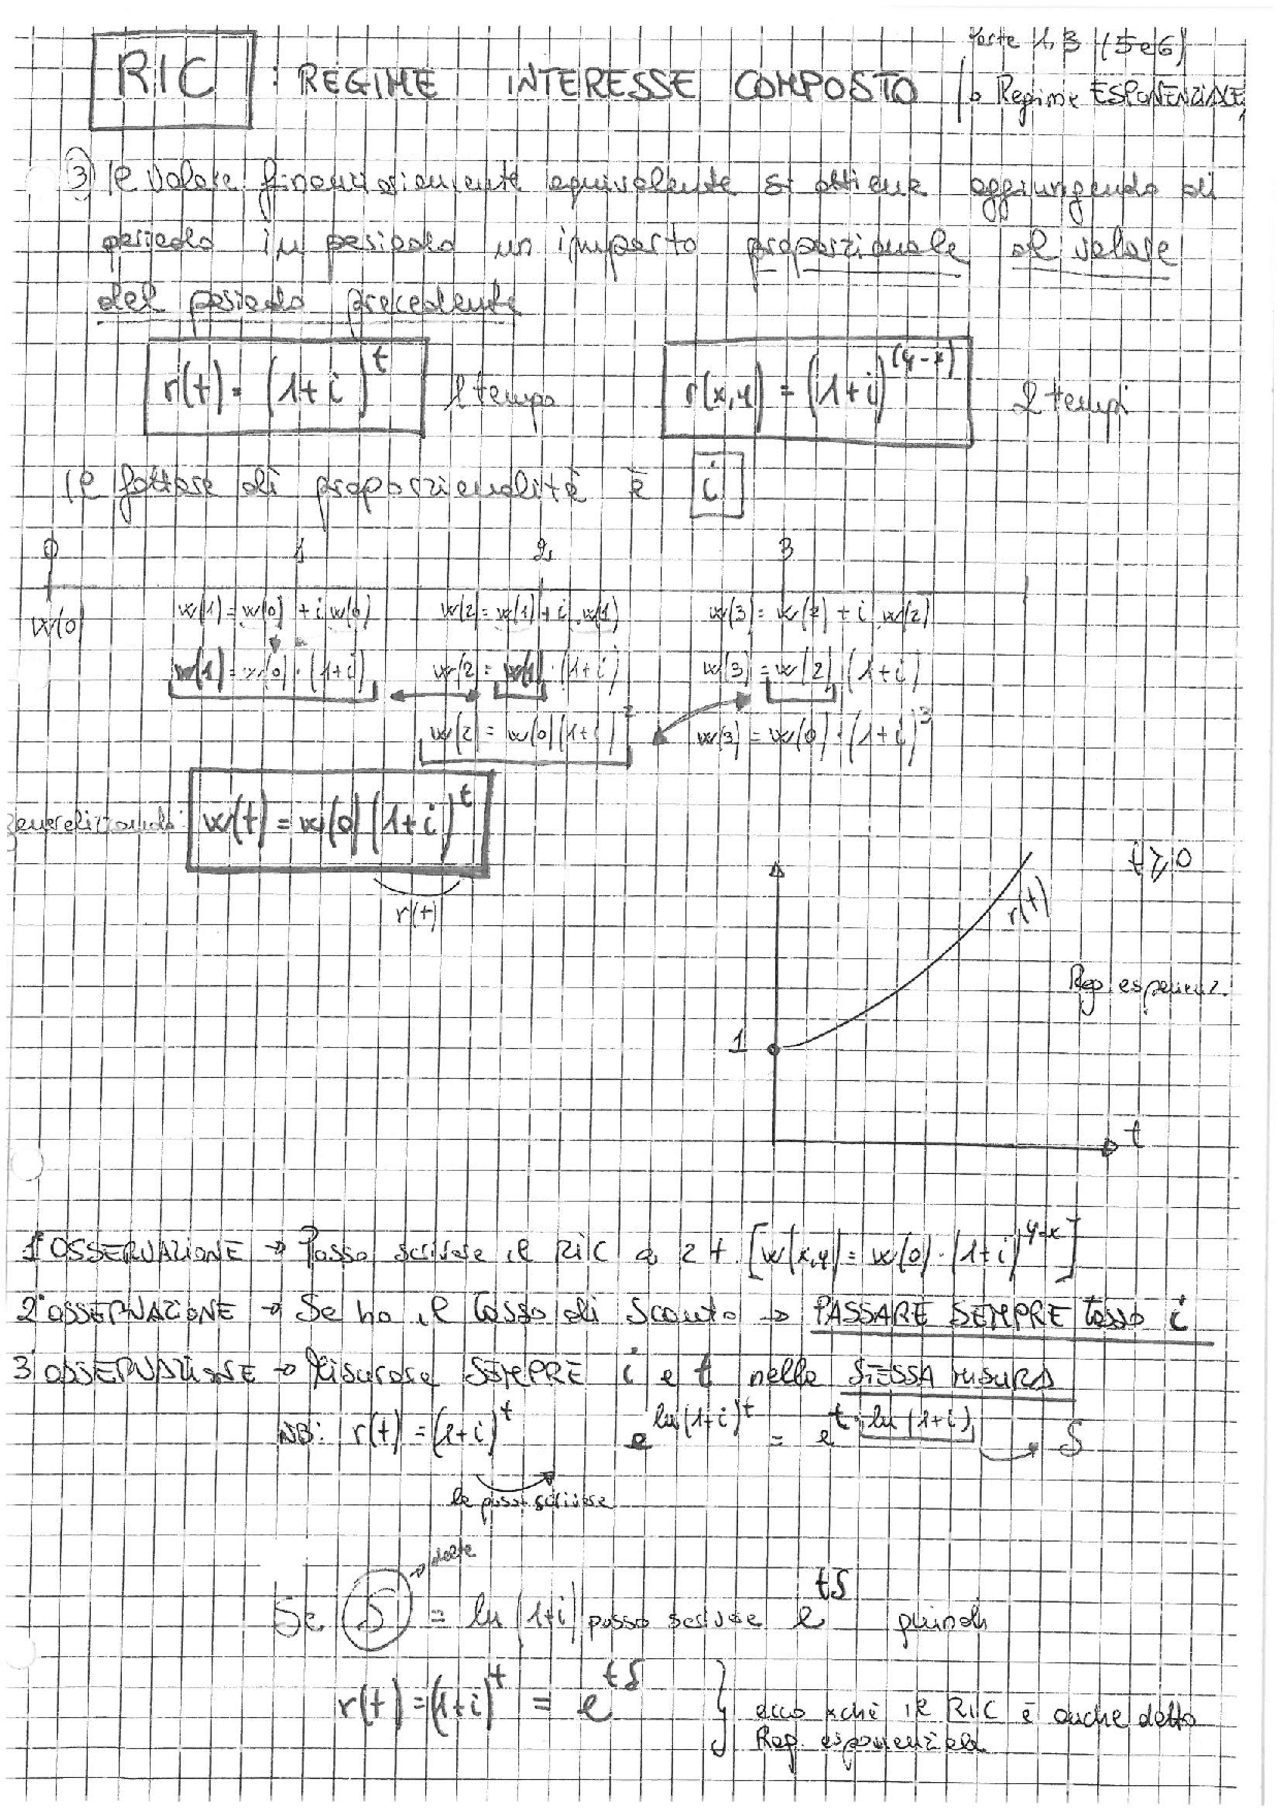 Parte 1,3 (5e6)
RIC : REGIME INTERESSE COMPOSTO / o Regime ESPONENZIALE
③ Il valore finanziariamente equivalente si ottiene aggiungendo di
periodo in periodo un importo proporzionale al valore
del periodo precedente
r(t) = (1+i)^t 1 tempo r(x,y) = (1+i)^(y-x) 2 tempi
Il fattore di proporzionalità è i
0 1 2 3
w(0) w(1)=w(0)+i w(0) w(2)=w(1)+i w(1) w(3)=w(2)+i w(2)
w(1)=w(0)·(1+i) w(2)=w(1)·(1+i) w(3)=w(2)(1+i)
w(2)=w(0)(1+i)^2 w(3)=w(0)·(1+i)^3
Generalizzando: w(t)=w(0)(1+i)^t
r(t)
t≥0
r(t)
Reg. esponenz.
1
t
1° OSSERVAZIONE → Posso scrivere il RIC a 2 t. [w(x,y)=w(0)·(1+i)^y-x]
2° OSSERVAZIONE → Se ho il tasso di sconto → PASSARE SEMPRE tasso i
3° OSSERVAZIONE → Misurare SEMPRE i e t nella STESSA MISURA
NB: r(t)=(1+i)^t e^ln(1+i)^t = e^t·ln(1+i) → δ
la posso scrivere
→ delta
Se δ = ln(1+i) posso scrivere e^tδ quindi
r(t)=(1+i)^t = e^tδ } ecco xché il RIC è anche detto
Reg. esponenziale